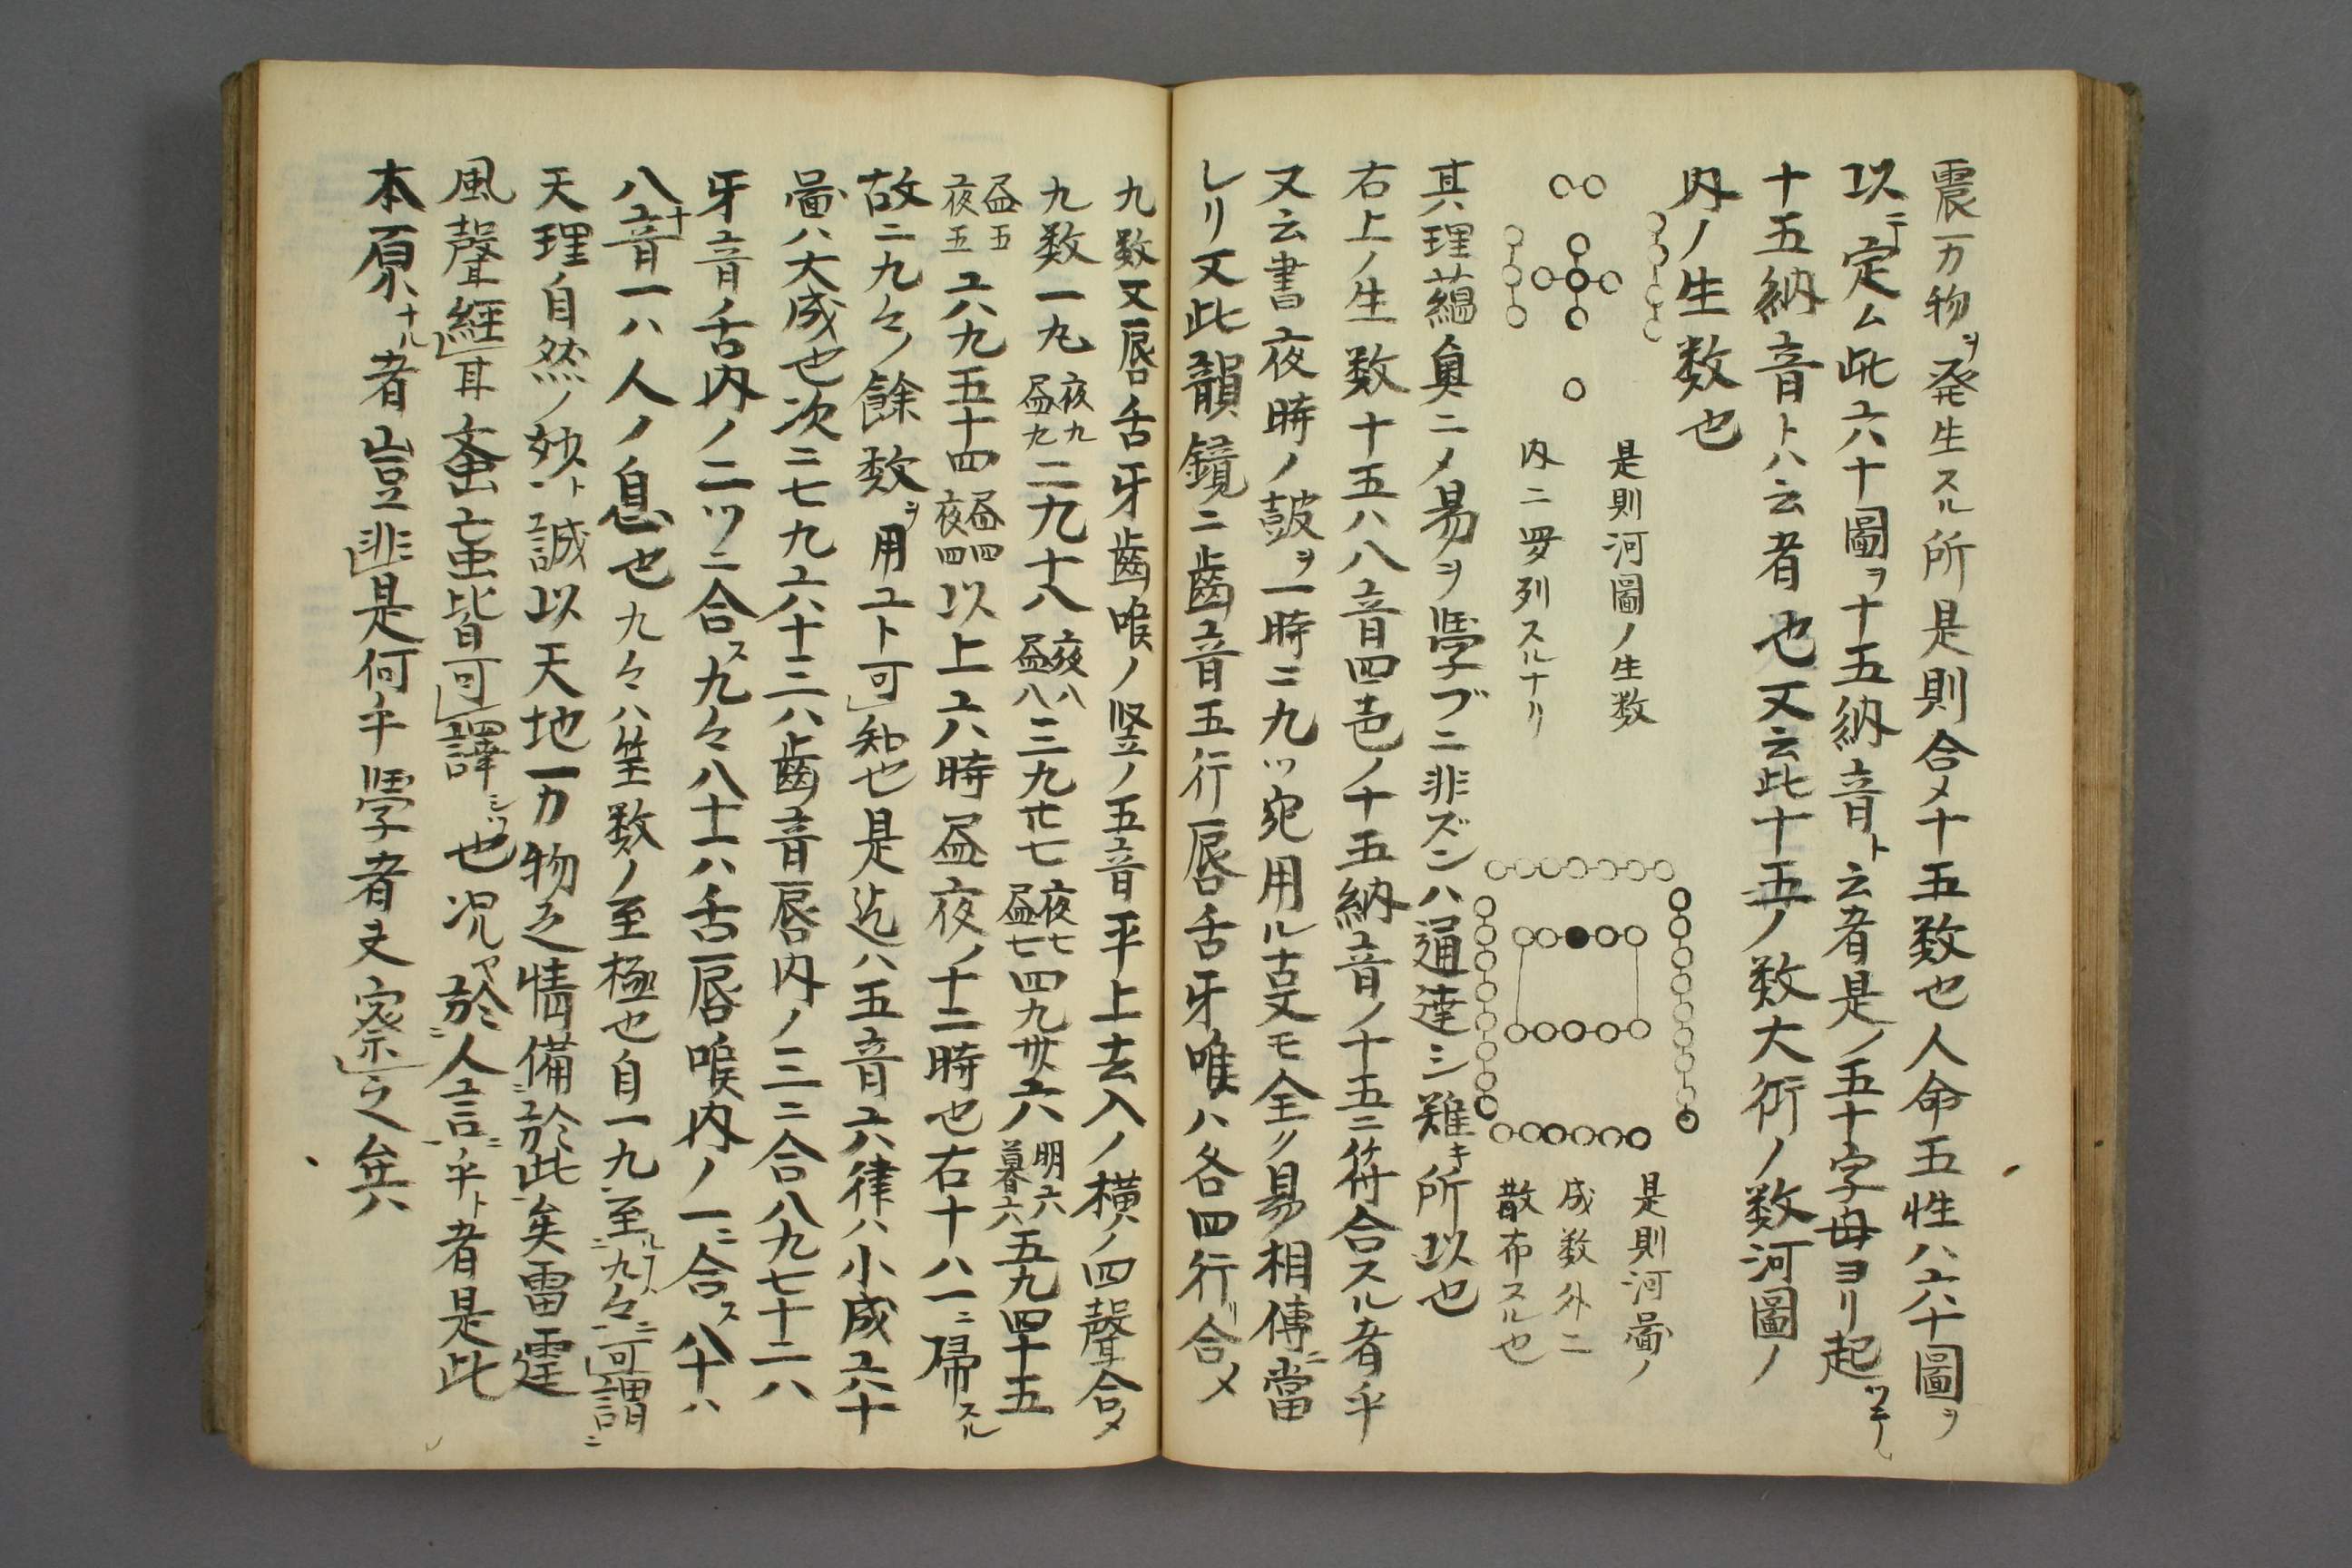 震万物ヲ発生スル所是則合メ十五数也人命五性ハ六十圖ヲ
以テ定ム此六十圖ヲ十五納音ト云者是ノ五十字母ヨリ起
十五納音トハ云者也又云此十五ノ数大衍ノ数河圖ノ
内ノ生数也
是則河圖ノ生数
内ニ羅列スルナリ
是則河啚ノ
成数外ニ
散布スル也
其理蘊奥ニノ易ヲ學ブニ非ズンハ通達シ難キ所以也
右上ノ生数十五ハ八音四色ノ十五納音ノ十五ニ符合スル者乎
又云書夜時ノ皷ヲ一時ニ九ツ宛用ル古文モ全ク易相傳ニ當
レリ又此韻鏡ニ齒音五行唇舌牙喉ハ各四行リ合メ
九数又唇舌牙齒喉ノ竪ノ五音平上去入ノ横ノ四聲合メ
九数一九夜九昼九二九十八夜八昼八三九廿七夜七昼七四九卅六明六暮六五九四十五
昼五夜五六九五十四昼四夜四以上六時昼夜ノ十二時也右十八一ニ帰スル
故ニ九々ノ餘数ヲ用ユト可知也是迄ハ五音六律ハ小成六十
啚ハ大成也次ニ七九六十三ハ齒音唇内ノ三ニ合八九七十二ハ
牙音ノ舌内ノ二ツニ合ス九々八十一ハ舌唇喉内ノ一ニ合ス八十ハ
八十音一ハ人ノ息也九々ハ筭数ノ至極也自一九至ル九々ニ可謂
天理ノ自然ノ妙ト誠以天地万物之情備於此矣雷霆
風聲經耳蚊虻皆可譯也况ヤ於人言乎ト者是此
本原ナル者豈非是何乎學者夫察之矣